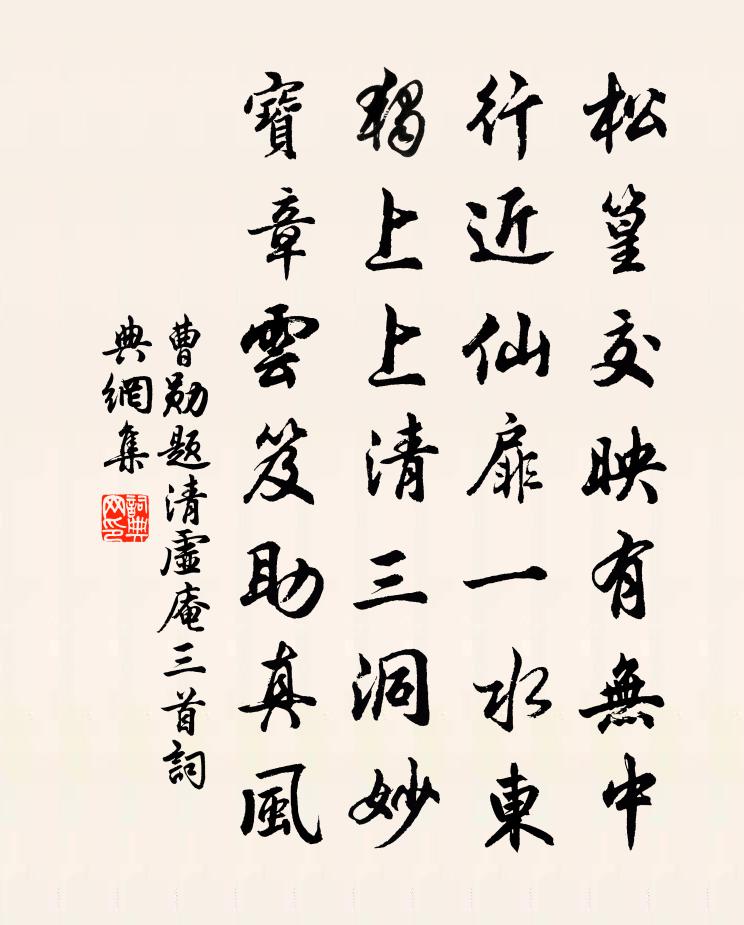 松篁交映有無中
行近仙扉一水東
獨上上清三洞妙
寶章雲笈助真風
曹勛題清虛庵三首詞
典網集
詞典
网印